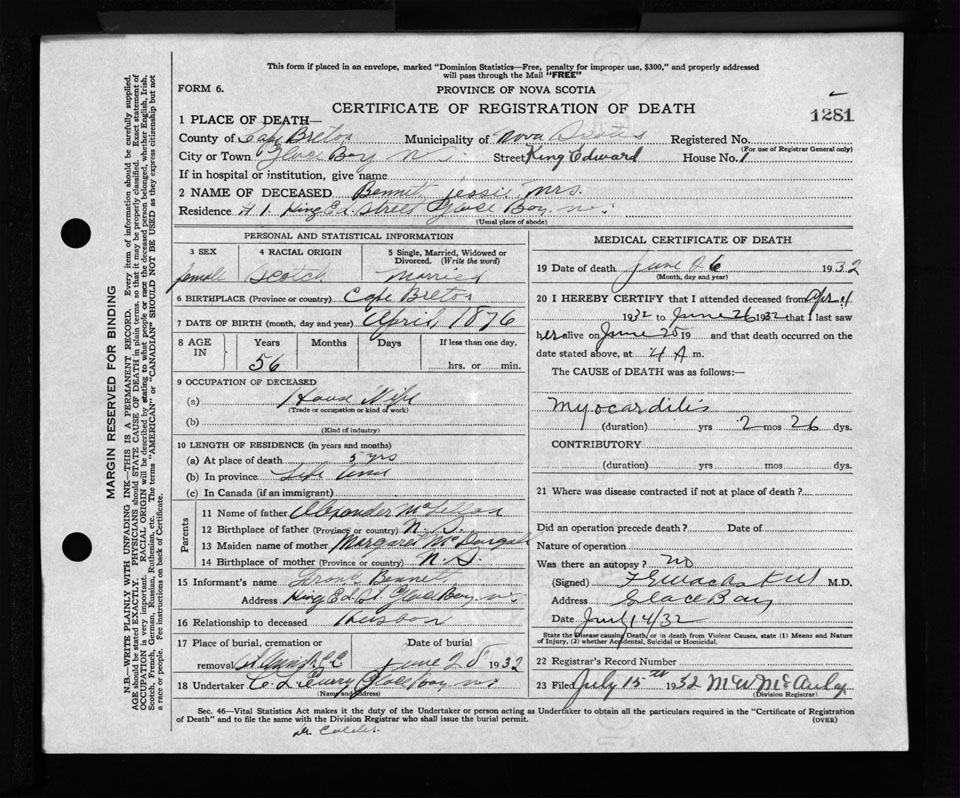 This form if placed in an envelope, marked "Dominion Statistics—Free, penalty for improper use, $300," and properly addressed
will pass through the Mail "FREE"
FORM 6.
PROVINCE OF NOVA SCOTIA
CERTIFICATE OF REGISTRATION OF DEATH
1281
1 PLACE OF DEATH—
County of Cape Breton Municipality of Nova Scotia Registered No.
(For use of Registrar General only)
City or Town Glace Bay N.S. Street King Edward House No. 1
If in hospital or institution, give name
2 NAME OF DECEASED Bennett Jessie Mrs.
Residence # 1 King Ed. Street Glace Bay N.S.
(Usual place of abode)
PERSONAL AND STATISTICAL INFORMATION
3 SEX 4 RACIAL ORIGIN 5 Single, Married, Widowed or Divorced. (Write the word)
female Scotch Married
6 BIRTHPLACE (Province or country) Cape Breton
7 DATE OF BIRTH (month, day and year) April, 1876
8 AGE IN Years Months Days If less than one day,
56 hrs. or min.
9 OCCUPATION OF DECEASED
(a) House Wife
(Trade or occupation or kind of work)
(b)
(Kind of industry)
10 LENGTH OF RESIDENCE (in years and months)
(a) At place of death 5 yrs
(b) In province Life time
(c) In Canada (if an immigrant)
Parents
11 Name of father Alexander McLellan
12 Birthplace of father (Province or country) N.S.
13 Maiden name of mother Margaret McDougall
14 Birthplace of mother (Province or country) N.S.
15 Informant's name Bennett
Address King Ed St. Glace Bay N.S.
16 Relationship to deceased Husband
17 Place of burial, cremation or Date of burial
removal June 28 1932
18 Undertaker C. L. Curry Glace Bay N.S.
(Name and address)
MEDICAL CERTIFICATE OF DEATH
19 Date of death June 26 1932
(Month, day and year)
20 I HEREBY CERTIFY that I attended deceased from Apr 1
1932 to June 26 1932 that I last saw
her alive on June 25 19 and that death occurred on the
date stated above, at 4 A m.
The CAUSE of DEATH was as follows:
Myocarditis
(duration) yrs 2 mos 26 dys.
CONTRIBUTORY
(duration) yrs mos dys.
21 Where was disease contracted if not at place of death?
Did an operation precede death? Date of
Nature of operation
Was there an autopsy? no
(Signed) M.D.
Address Glace Bay
Date 14/32
State the Disease causing Death, or in death from Violent Causes, state (1) Means and Nature
of Injury, (2) whether Accidental, Suicidal or Homicidal.
22 Registrar's Record Number
23 Filed July 15th 1932 M W McAulay
(Division Registrar)
Sec. 46—Vital Statistics Act makes it the duty of the Undertaker or person acting as Undertaker to obtain all the particulars required in the "Certificate of Registration
of Death" and to file the same with the Division Registrar who shall issue the burial permit.
(OVER)
MARGIN RESERVED FOR BINDING
N.B.—WRITE PLAINLY WITH UNFADING INK—THIS IS A PERMANENT RECORD. Every item of information should be carefully supplied.
AGE should be stated EXACTLY. PHYSICIANS should STATE CAUSE OF DEATH in plain terms, so that it may be properly classified. Exact statement of
OCCUPATION is very important. RACIAL ORIGIN will be described by stating to what people or race the deceased person belonged, whether English, Irish,
Scotch, French, German, Russian, Ruthenian, etc. The terms "AMERICAN" or "CANADIAN" SHOULD NOT BE USED as they express citizenship but not
a race or people. Fee instructions on back of Certificate.